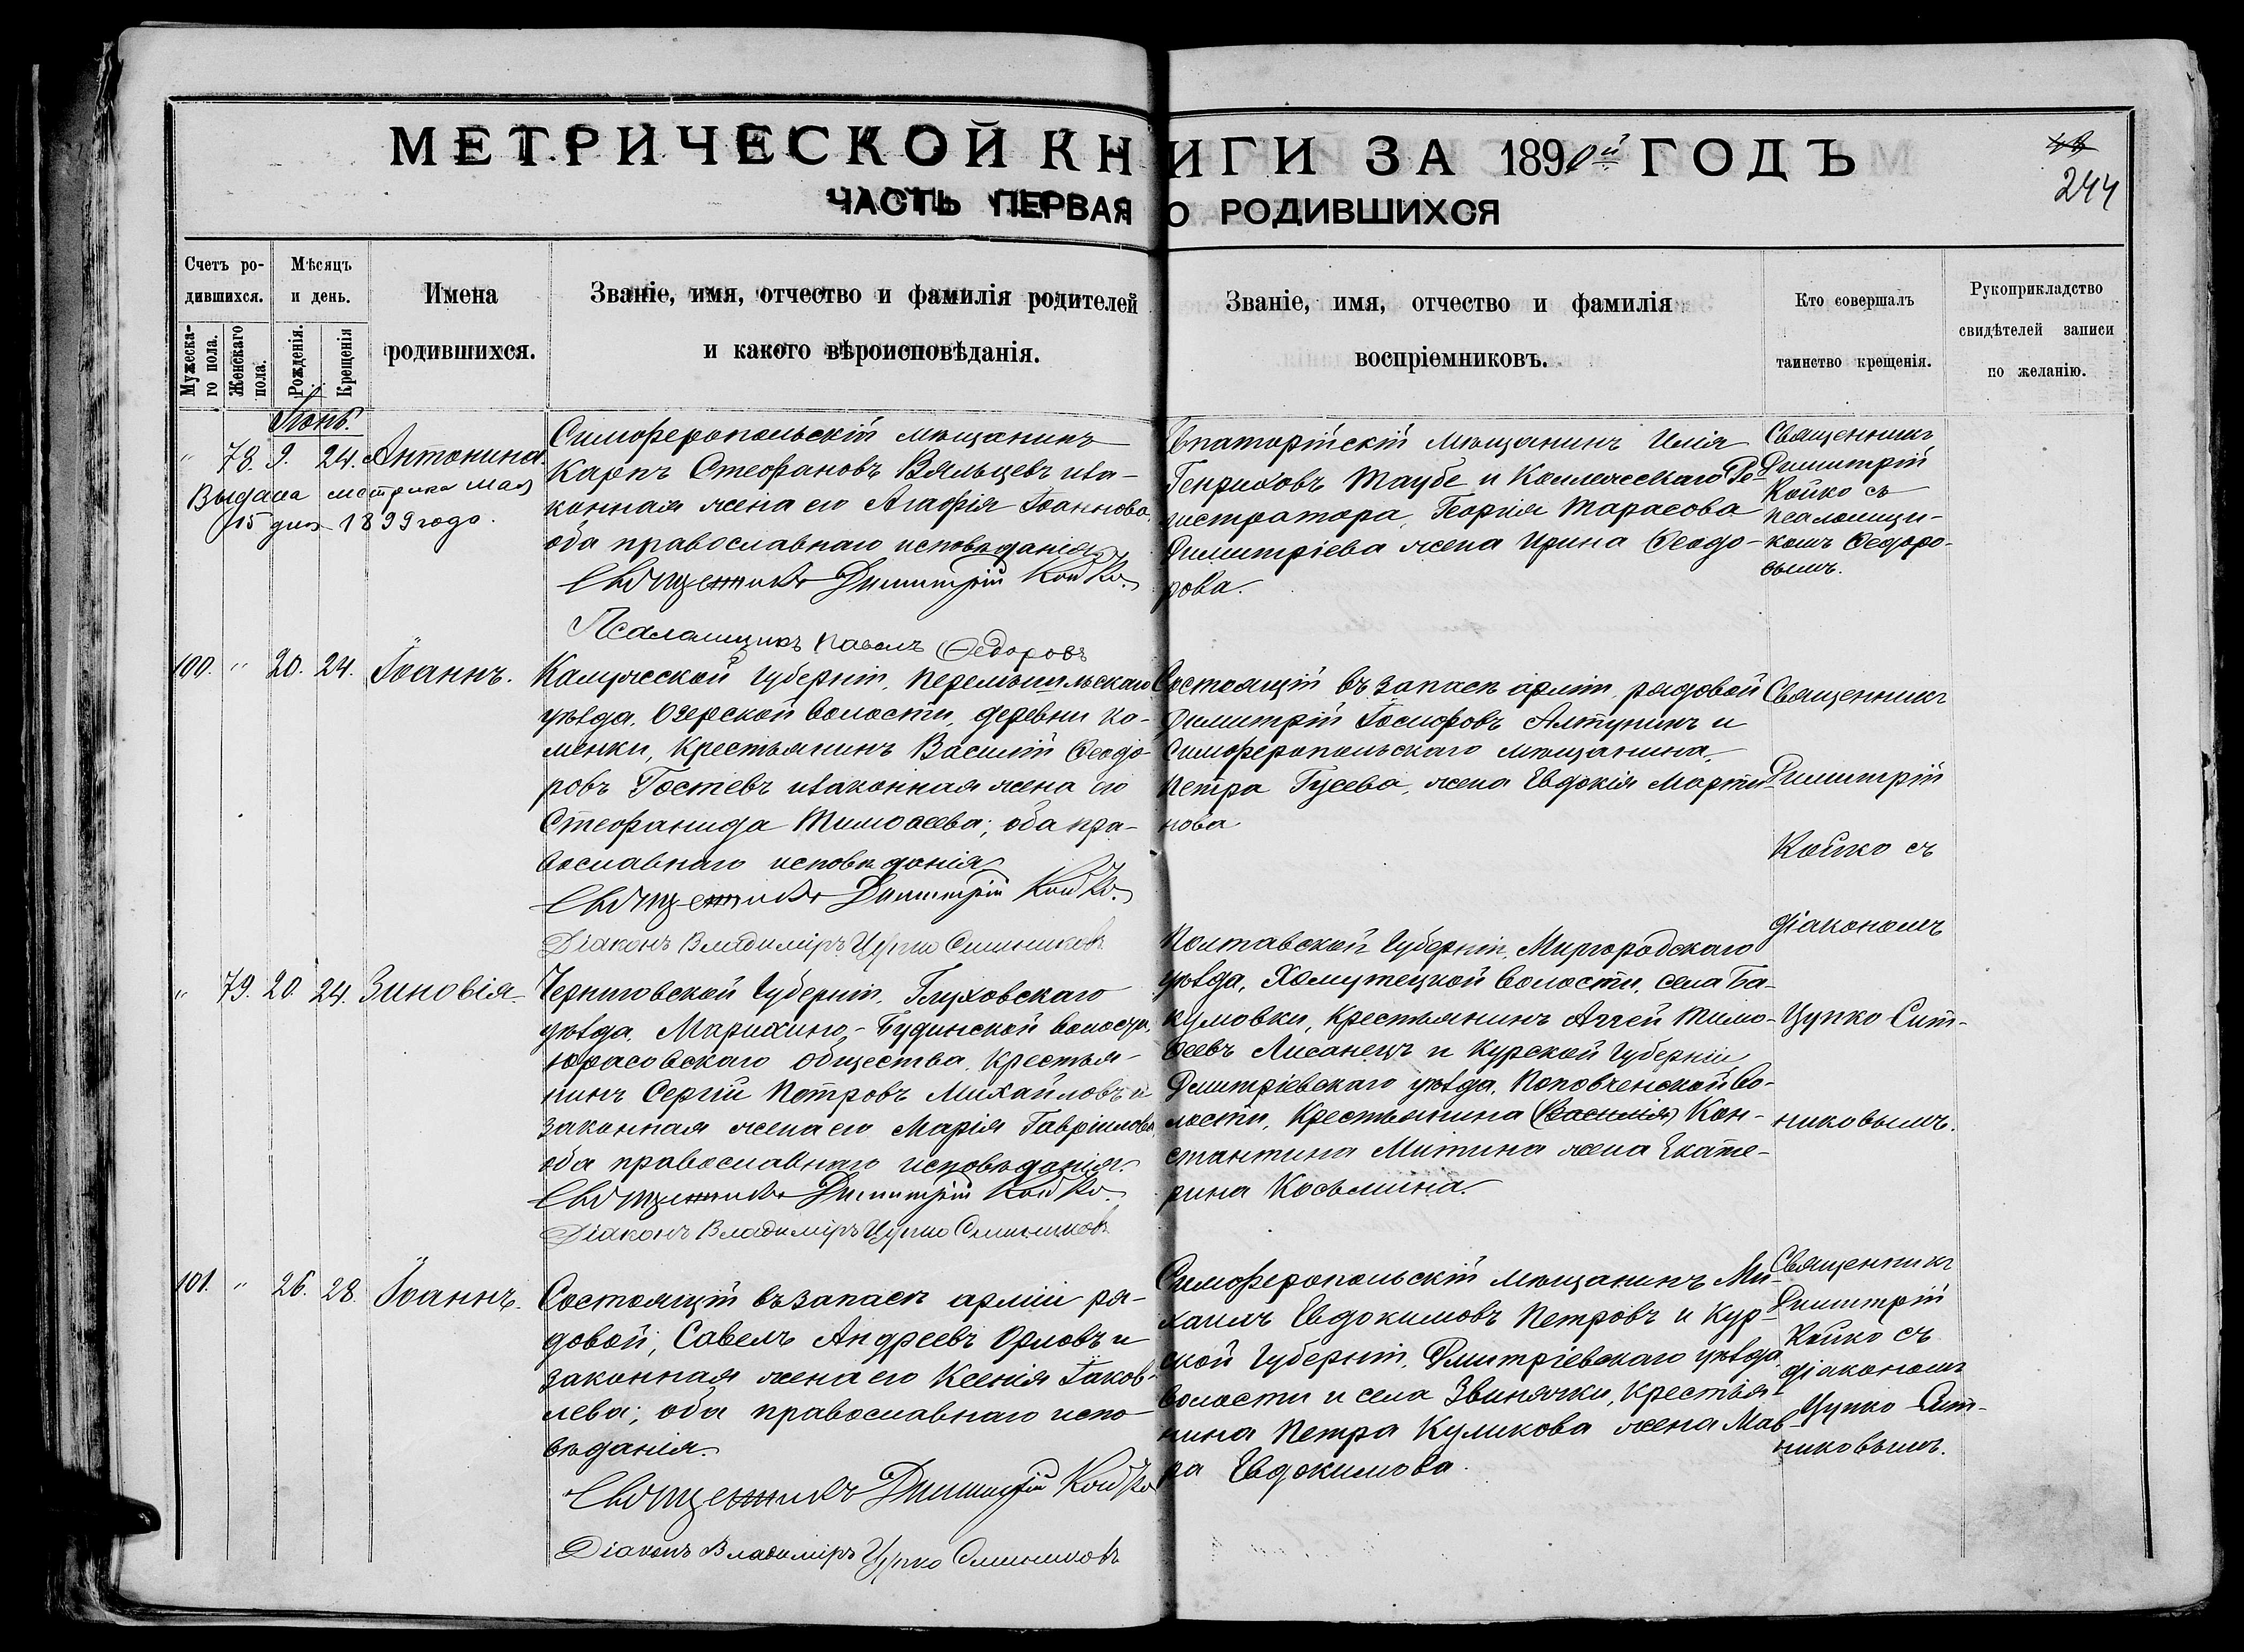 МЕТРИЧЕСКОЙ КНИГИ ЗА 1890й ГОДЪ
244
ЧАСТЬ ПЕРВАЯ О РОДИВШИХСЯ
Счетъ ро-
дившихся.
Мужеска-
го пола.
Женскаго
пола.
Мѣсяцъ
и день.
Рожденія.
Крещенія
Имена
родившихся.
Званіе, имя, отчество и фамилія родителей
и какого вѣроисповѣданія.
Званіе, имя, отчество и фамилія
воспріемниковъ.
Кто совершалъ
таинство крещенія.
Рукоприкладство
свидѣтелей записи
по желанію.
" 78. 9. 24. Антонина.
Выдана метрика Мая
15 дня 1899 года.
Симферопольскій мѣщанинъ
Карпъ Стефановъ Вяльцевъ иза-
конная жена его Агафія Іоаннова,
оба православнаго исповѣданія.
Священникъ Димитрій Койко.
Псаломщикъ Павелъ Ѳедоровъ
Евпаторійскій мѣщанинъ Илія
Генриховъ Таубе и Коллежскаго Ре-
гистратора, Георгія Тарасова
Димитріева жена Ирина Ѳеодо-
рова.
Священникъ
Димитрій
Койко съ
псаломщи-
комъ Ѳедоро-
вымъ.
100. " 20. 24. Іоаннъ.
Калужской губерніи, Перемышльскаго
уѣзда, Озерской волости, деревни Ка-
менки, крестьянинъ Василій Ѳеодо-
ровъ Гостевъ изаконная жена его
Стефанида Тимоѳеева; оба пра-
вославнаго исповѣданія
Священникъ Димитрій Койко.
Діаконъ Владиміръ Цупко Ситниковъ
Состоящій въ запасѣ арміи, рядовой
Димитрій Іосифовъ Алтунинъ и
Симферопольскаго мѣщанина,
Петра Гусева, жена Евдокія Марти-
нова
Священникъ
Димитрій
Койко съ
діакономъ
Цупко Сит-
никовымъ.
" 79. 20. 24. Зиновія.
Черниговской губерніи, Глуховскаго
уѣзда, Марихино-Будинской волости,
Юрасовскаго общества, крестья-
нинъ Сергій Петровъ Михайловъ и
законная жена его Марія Гавріилова,
оба православнаго исповѣданія.
Священникъ Димитрій Койко.
Діаконъ Владиміръ Цупко Ситниковъ
Полтавской губерніи, Миргородскаго
уѣзда, Хомутецкой волости, села Ба-
кумовки, крестьянинъ Аггей Тимо-
ѳеевъ Лисанецъ и Курской губерніи
Дмитріевскаго уѣзда, Поповченской во-
лости, крестьянина (Василія) Кон-
стантина Митина жена Екате-
рина Косьмина.
101. " 26. 28. Іоаннъ.
Состоящій въ запасѣ арміи ря-
довой, Савелъ Андреевъ Орловъ и
законная жена его Ксенія Іаков-
лева; оба православнаго испо-
вѣданія.
Священникъ Димитрій Койко
Діаконъ Владиміръ Цупко Ситниковъ
Симферопольскій мѣщанинъ Ми-
хаилъ Евдокимовъ Петровъ и Кур-
ской губерніи, Дмитріевскаго уѣзда,
волости и села Звинячки, крестья-
нина Петра Куликова жена Мав-
ра Евдокимова.
Священникъ
Димитрій
Койко съ
діакономъ
Цупко Сит-
никовымъ.